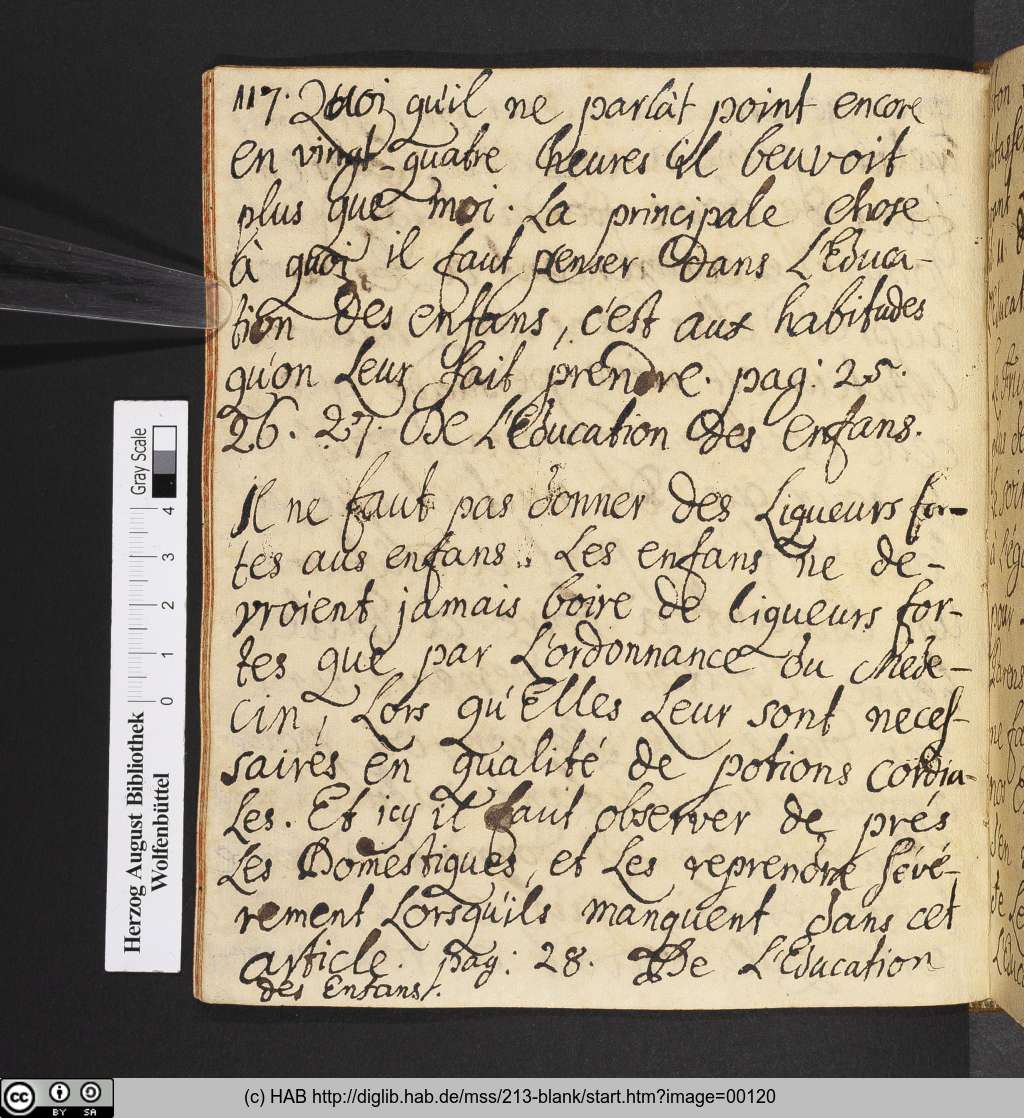 117. Quoi qu'il ne parlât point encore
en vingt-quatre heures il beuvoit
plus que moi. La principale chose
à quoi il faut penser dans L'Educa-
tion des enfans, c'est aux habitudes
qu'on Leur fait prendre. pag: 25.
26. 27. De L'Education des enfans.
Il ne faut pas donner des Liqueurs for-
tes aus enfans. Les enfans ne de-
vroient jamais boire de liqueurs for-
tes que par L'ordonnance du Mede-
cin, Lors qu'Elles Leur sont necef-
saires en qualité de potions cordia-
Les. Et icy il faut observer de prés
Les Domestiques, et Les reprendre sévé-
rement Lorsqu'ils manquent dans cet
article. pag: 28. De L'Education
des Enfans.
Herzog August Bibliothek
Wolfenbüttel
Gray Scale
0 1 2 3 4
CC BY SA
(c) HAB http://diglib.hab.de/mss/213-blank/start.htm?image=00120